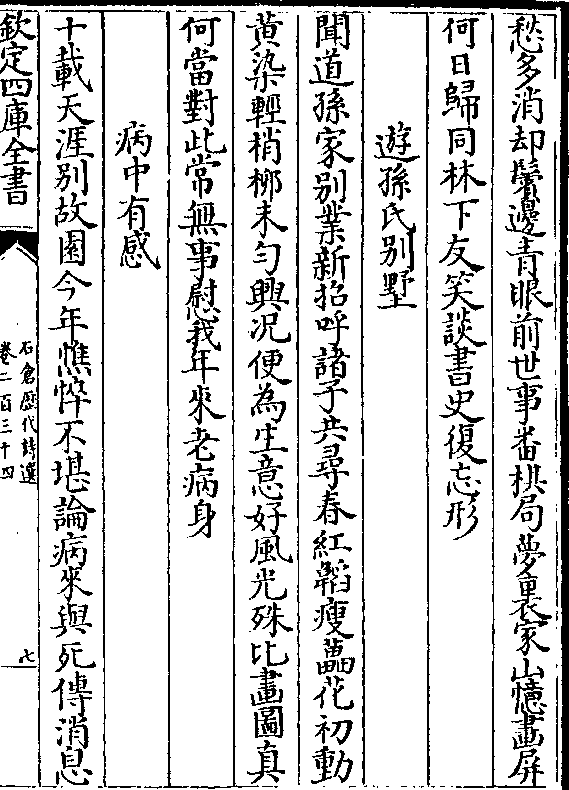 愁多消却鬢邊青眼前世事番棋局夢裏家山憶畫屏
何日歸同林下友笑談書史復忘形
遊孫氏别墅
聞道孫家别業新招呼諸子共尋春紅韜瘦蘲花初動
黄染輕梢栁未匀興况便為生意好風光殊比畫圖真
何當對此常無事慰我年來老病身
病中有感
十載天涯别故園今年憔悴不堪論病來與死傳消息
欽定四庫全書
石倉歴代詩選
卷二百三十四
七